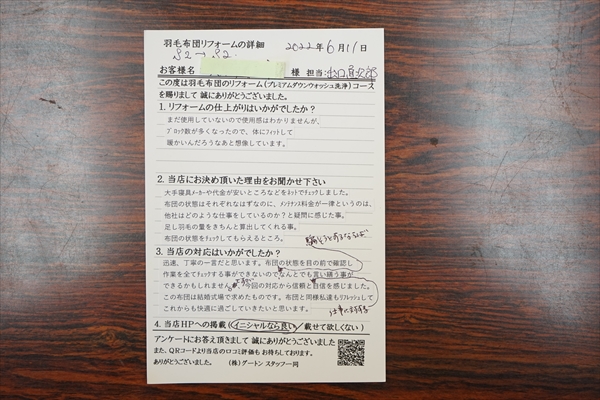 羽毛布団リフォームの詳細
2022年6月11日
S2→S2
お客様名 様 担当:
この度は羽毛布団のリフォーム(プレミアムダウンウォッシュ洗浄)コース
を賜りまして 誠にありがとうございました。
1. リフォームの仕上がりはいかがでしたか?
まだ使用していないので使用感はわかりませんが、
ブロック数が多くなったので、体にフィットして
暖かいんだろうなあと想像しています。
2. 当店にお決め頂いた理由をお聞かせ下さい
大手寝具メーカーや代金が安いところなどをネットでチェックしました。
布団の状態はそれぞれなはずなのに、メンテナンス料金が一律というのは、
他社はどのような仕事をしているのか?と疑問に感じた事。
足し羽毛の量をきちんと算出してくれる事。
布団の状態をチェックしてもらえるところ。
騙そうとするならば
3. 当店の対応はいかがでしたか?
迅速、丁寧の一言だと思います。布団の状態を目の前で確認し
作業を全てチェックする事ができないのでなんとでも言い繕う事が
できるかもしれませんが、今回の対応から信頼と自信を感じました。
この布団は結婚式場で求めたものです。布団と同様私達もリフレッシュして
これからも快適に過ごしていきたいと思います。
仕事に対する
4. 当店HPへの掲載(イニシャルなら良い/載せて欲しくない)
アンケートにお答え頂きまして 誠にありがとうございました
また、QRコードより当店の口コミ評価も お待ちしております。
ありがとうございました。 (株)ゲートン スタッフ一同